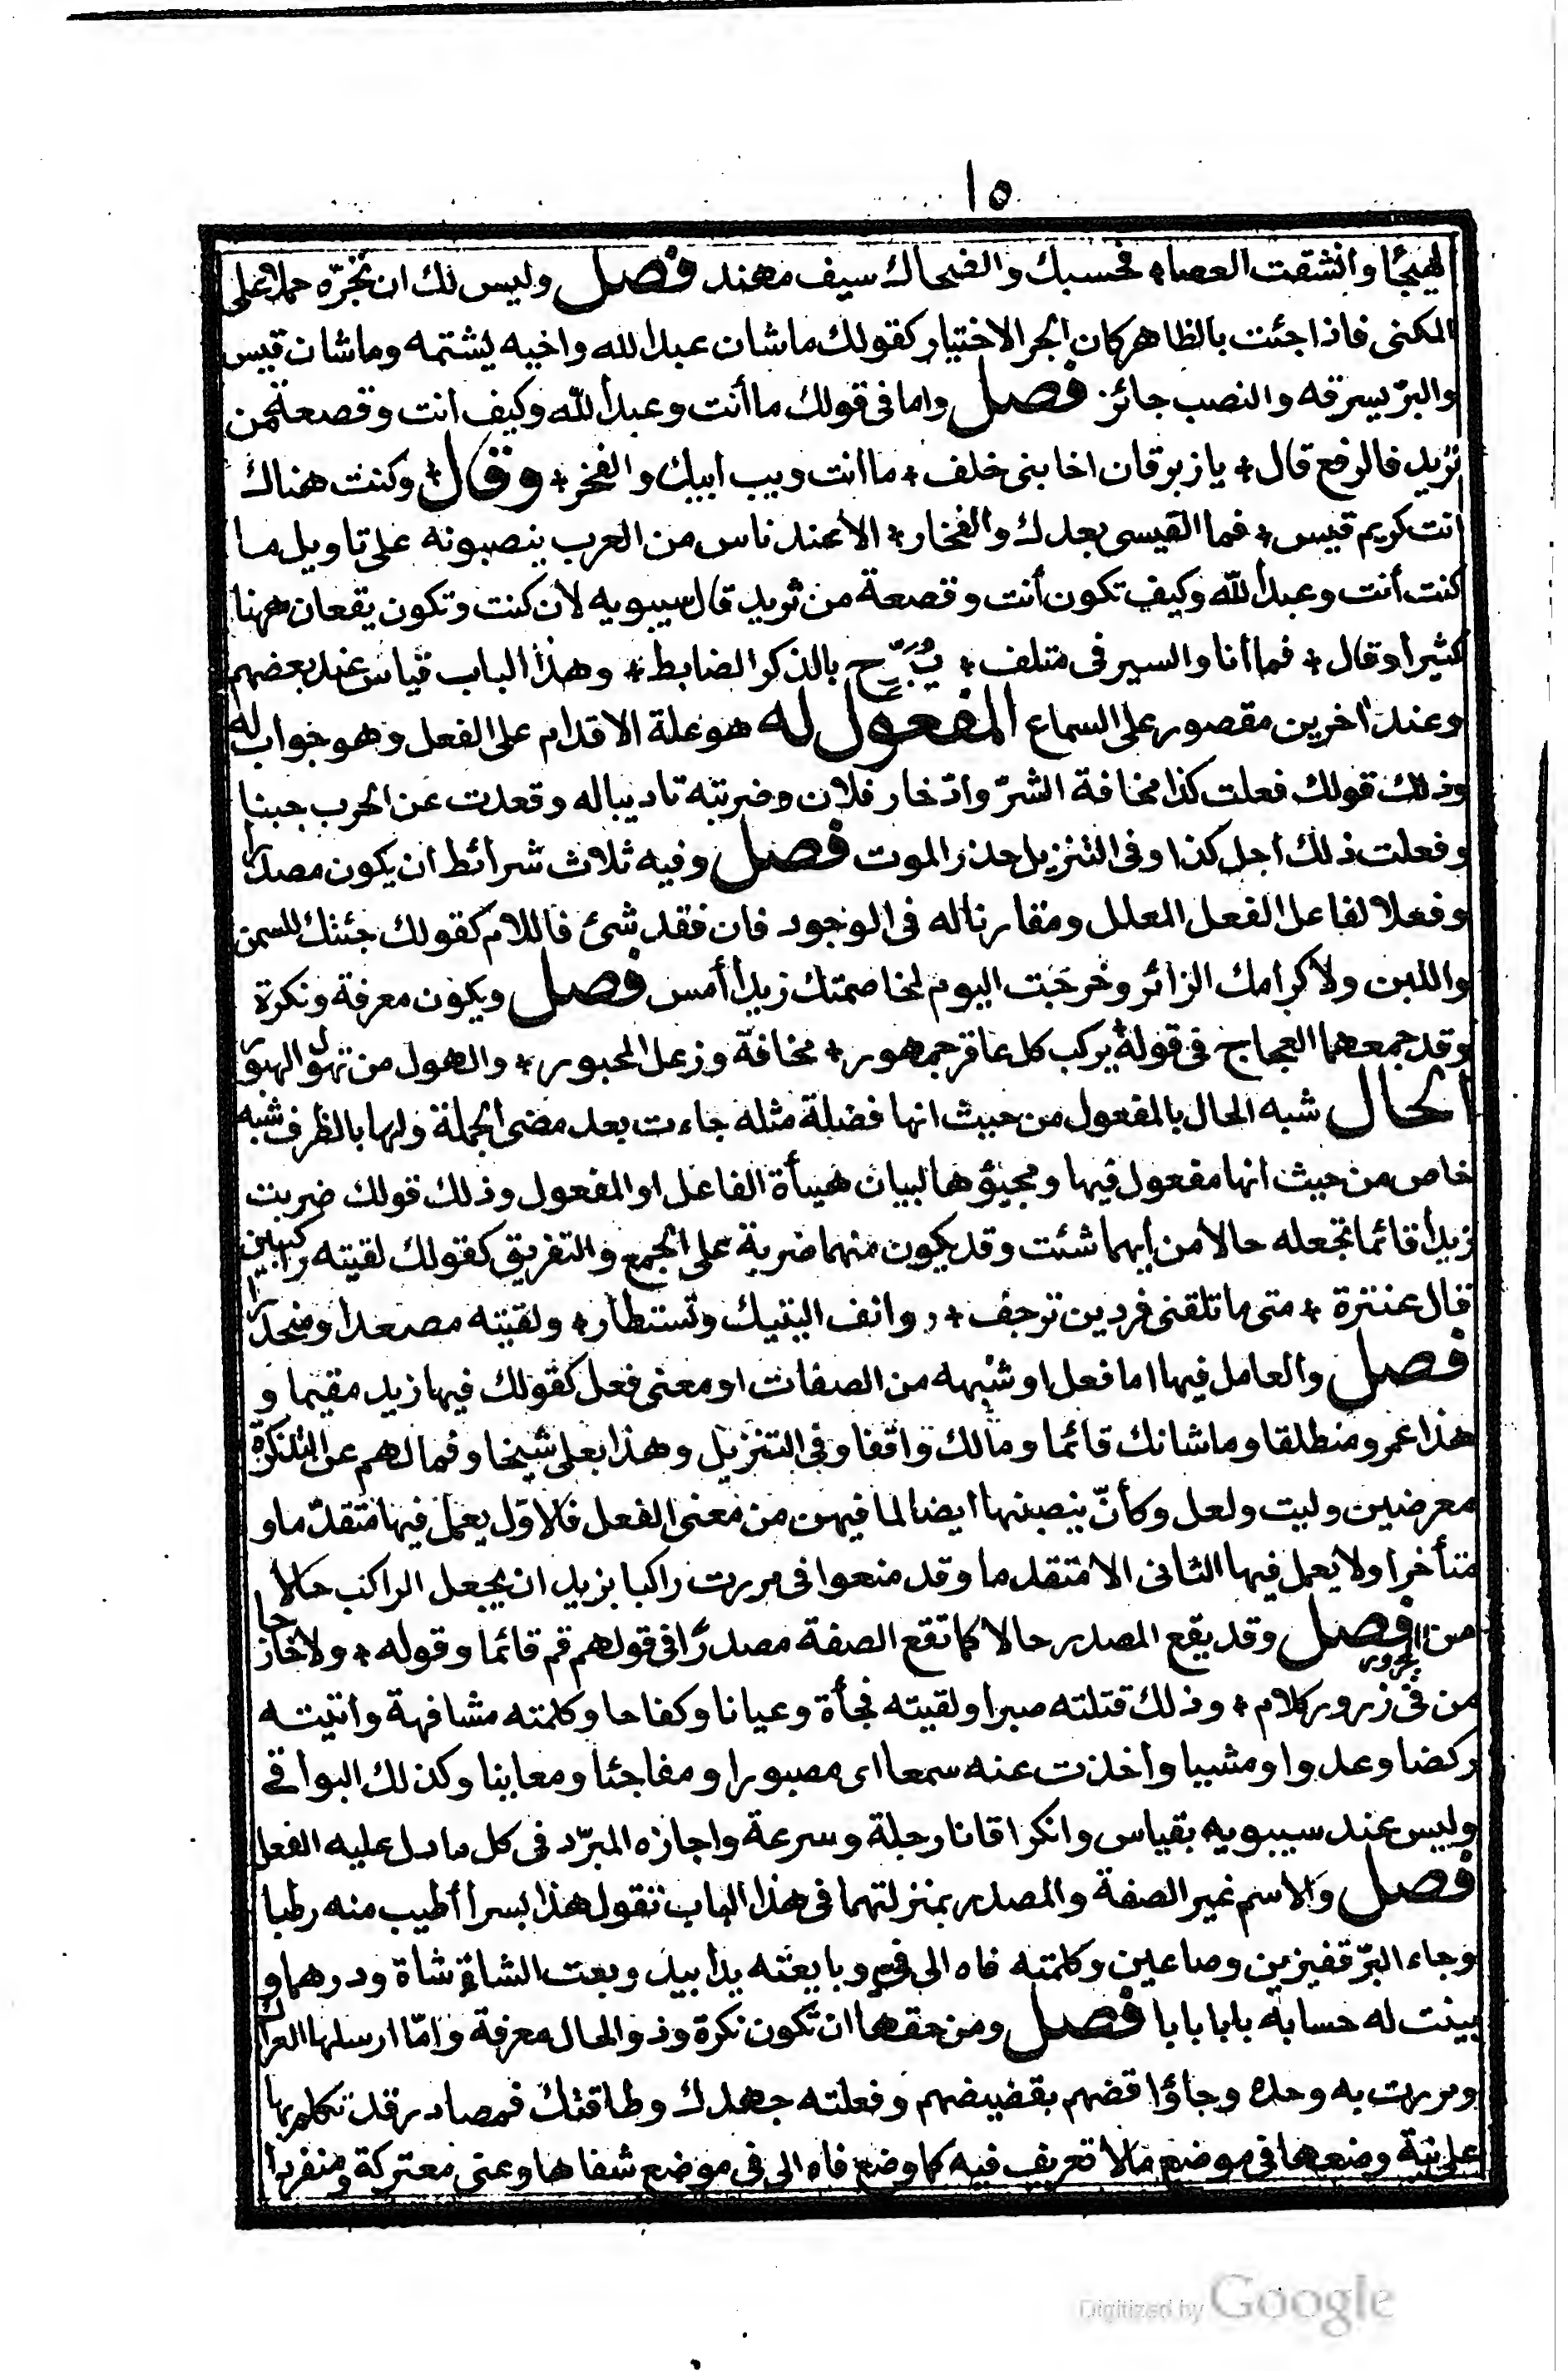 ١٥
الهيجا وانشقت العصا * فحسبك والضحاك سيف مهند فصل وليس لك ان تجرّه حملا على
المكنى فاذا جئت بالظاهر كان الجر الاختيار كقولك ما شان عبد الله واخيه يشتمه وما شان قيس
والبرّ يسرقه والنصب جائز فصل واما فى قولك ما أنت وعبد الله وكيف انت وقصعة من
ثريد فالرفع قال * يا زبرقان اخا بنى خلف * ما انت ويب ابيك والفخر * وقال * وكنت هناك
انت كريم قيس * فما القيسى بعدك والفخار * الا عند ناس من العرب ينصبونه على تاويل ما
كنت أنت وعبد الله وكيف تكون أنت وقصعة من ثريد قال سيبويه لان كنت وتكون يقعان ههنا
كثيرا وقال * فما أنا والسير فى متلف * يُبَرِّح بالذكر الضابط * وهذا الباب قياس عند بعضهم
وعند اخرين مقصور على السماع المفعول له هو علة الاقدام على الفعل وهو جواب له
وذلك قولك فعلت كذا مخافة الشرّ وادّخار فلان وضربته تاديبا له وقعدت عن الحرب جبنا
وفعلت ذلك اجل كذا وفى التنزيل حذر الموت فصل وفيه ثلاث شرائط ان يكون مصدرا
وفعلا لفاعل الفعل المعلل ومقارنا له فى الوجود فان فقد شئ فاللام كقولك جئتك للسمن
واللبن ولاكرامك الزائر وخرجت اليوم لمخاصمتك زيدا أمس فصل ويكون معرفة ونكرة
وقد جمعهما العجاج فى قوله * يركب كل عاقر جمهور * مخافة وزعل المحبور * والهول من تهول الهبور
الحال شبه الحال بالمفعول من حيث انها فضلة مثله جاءت بعد مضى الجملة ولها بالظرف شبه
خاص من حيث انها مفعول فيها ومجيؤها لبيان هيأة الفاعل او المفعول وذلك قولك ضربت
زيدا قائما تجعله حالا من أيهما شئت وقد يكون منهما ضربة على الجمع والتفريق كقولك لقيته راكبين
قال عنترة * متى ما تلقنى فردين ترجف * روانف اليتيك وتستطار * ولقيته مصعدا ومنحدرا
فصل والعامل فيها اما فعل او شبهه من الصفات او معنى فعل كقولك فيها زيد مقيما و
هذا عمرو منطلقا وما شانك قائما ومالك واقفا وفى التنزيل وهذا بعلى شيخا وفما لهم عن التذكرة
معرضين وليت ولعل وكأنّ ينصبنها ايضا لما فيهن من معنى الفعل فالاوّل يعمل فيها متقدّما و
متأخرا ولا يعمل فيها الثانى الا متقدما وقد منعوا فى مررت راكبا بزيد ان يجعل الراكب حالا
من المجرور فصل وقد يقع المصدر حالا كما تقع الصفة مصدرًا فى قولهم قم قائما وقوله * ولا خارجا
من فىّ زور كلام * وذلك قتلته صبرا ولقيته فجأة وعيانا وكفاحا وكلمته مشافهة واتيته
ركضا وعدوا ومشيا واخذت عنه سمعا اى مصبورا ومفاجئا ومعاينا وكذلك البواقى
وليس عند سيبويه بقياس وانكر اتانا رجلة وسرعة واجازه المبرّد فى كل ما دل عليه الفعل
فصل والاسم غير الصفة والمصدر بمنزلتهما فى هذا الباب تقول هذا بسرا أطيب منه رطبا
وجاء البرّ قفيزين وصاعين وكلمته فاه الى فىّ وبايعته يدا بيد وبعت الشاة شاة ودرهما و
بينت له حسابه بابا بابا فصل ومن حقها ان تكون نكرة وذو الحال معرفة وامّا ارسلها العراك
ومررت به وحده وجاؤا قضهم بقضيضهم وفعلته جهدك وطاقتك فمصادر قد تكلم بها
على نيّة وضعها فى موضع مالا تعريف فيه كما وضع فاه الى فى موضع شفاها وعنى معتركة ومنفردا
Digitized by Google